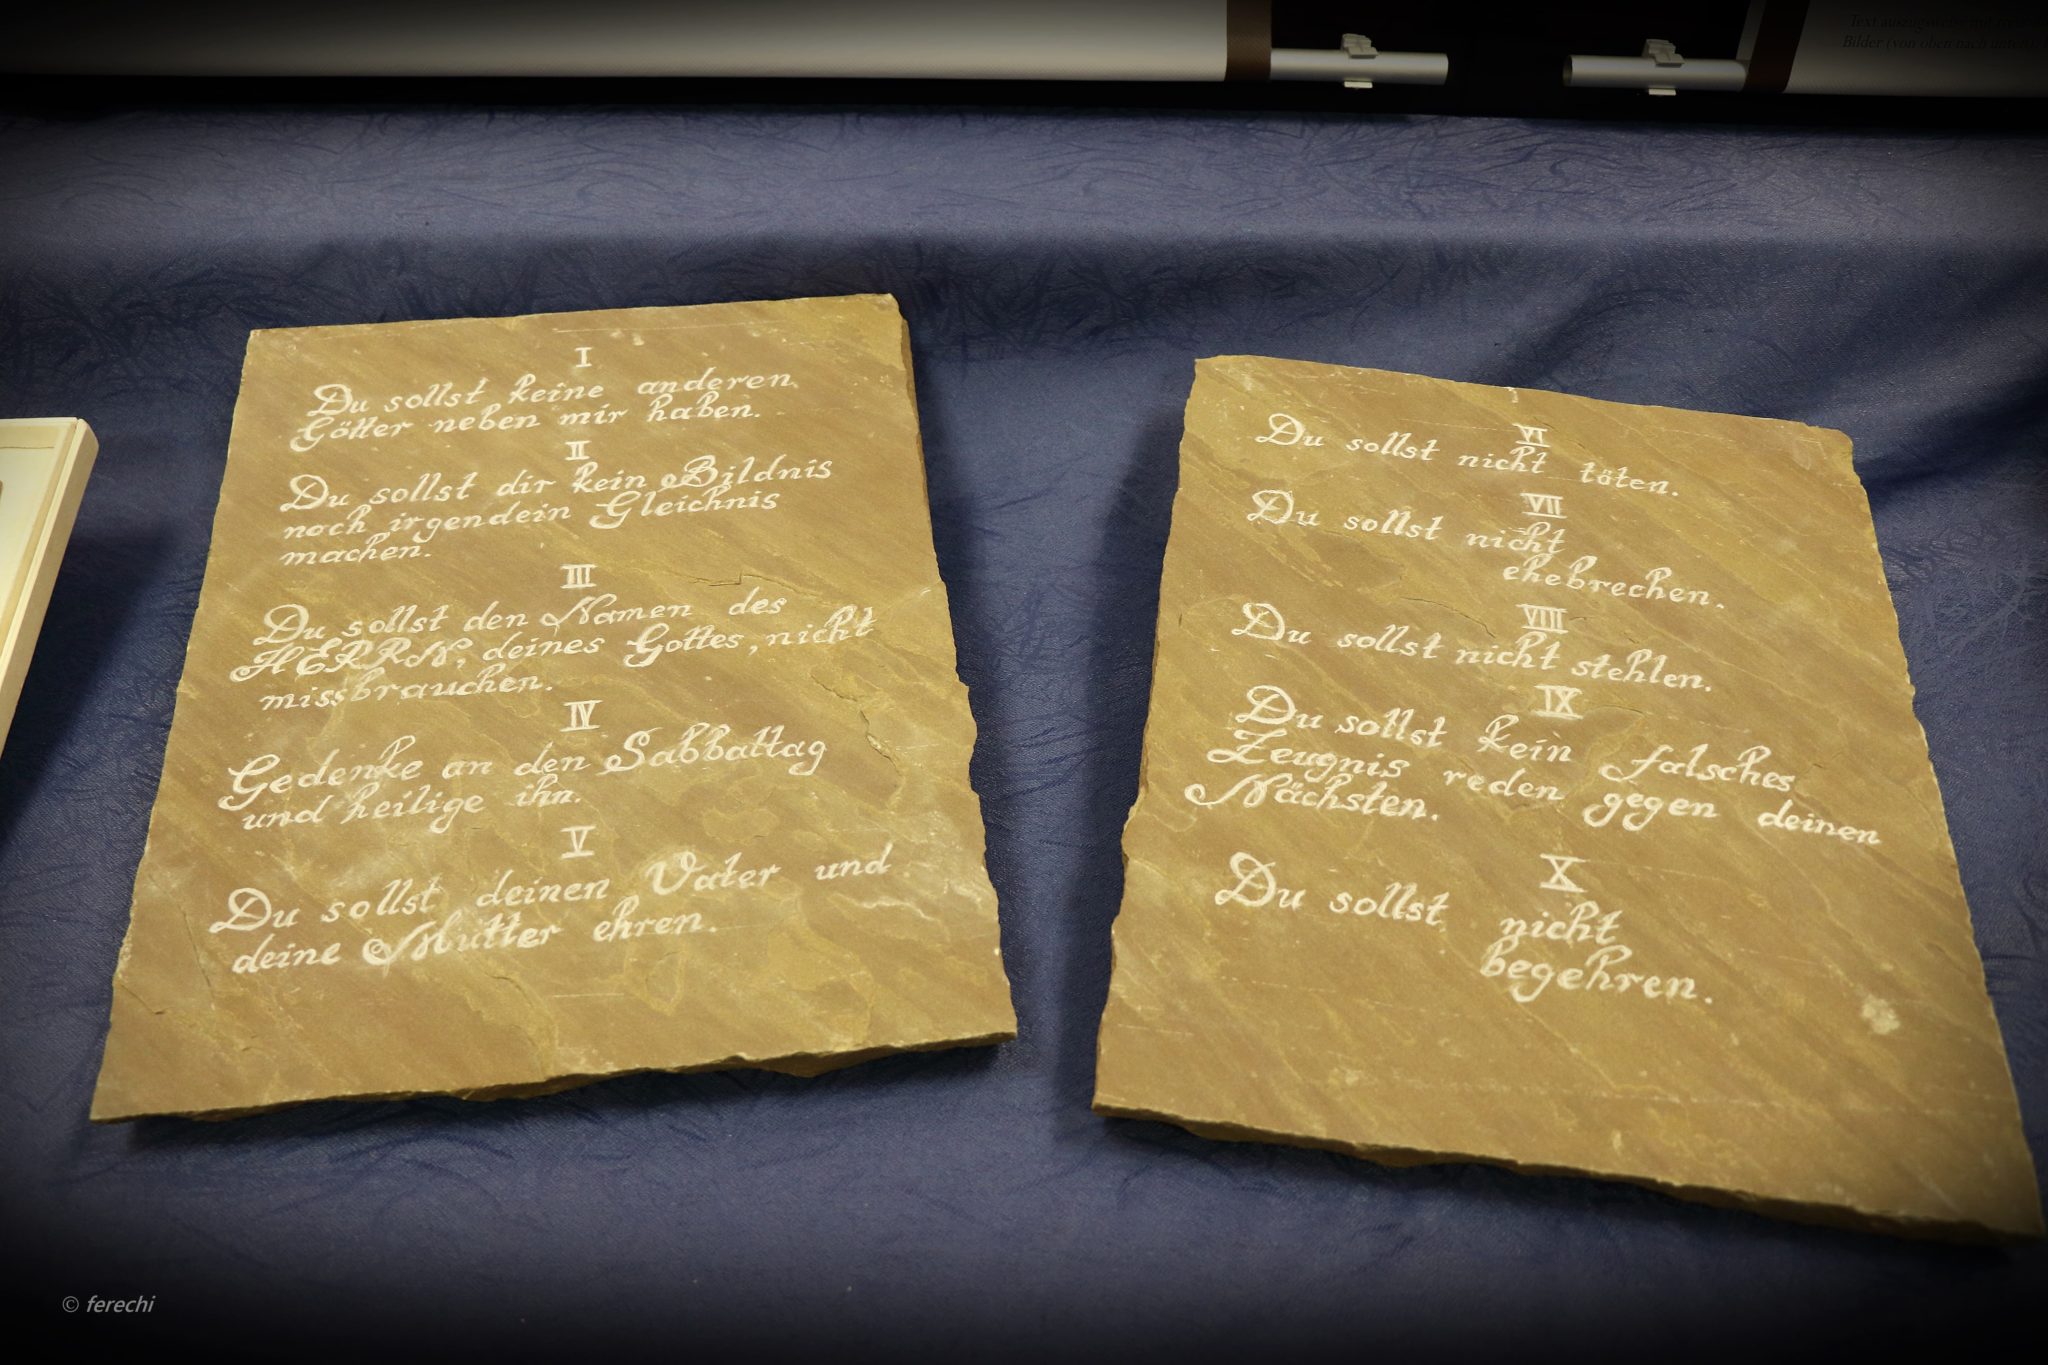 Text auszugsweise mit
Bilder (von oben nach unten)
I
Du sollst keine anderen
Götter neben mir haben.
II
Du sollst dir kein Bildnis
noch irgendein Gleichnis
machen.
III
Du sollst den Namen des
HERRN, deines Gottes, nicht
missbrauchen.
IV
Gedenke an den Sabbattag
und heilige ihn.
V
Du sollst deinen Vater und
deine Mutter ehren.
VI
Du sollst nicht täten.
VII
Du sollst nicht
ehebrechen.
VIII
Du sollst nicht stehlen.
IX
Du sollst kein falsches
Zeugnis reden gegen deinen
Nächsten.
X
Du sollst nicht
begehren.
© ferechi